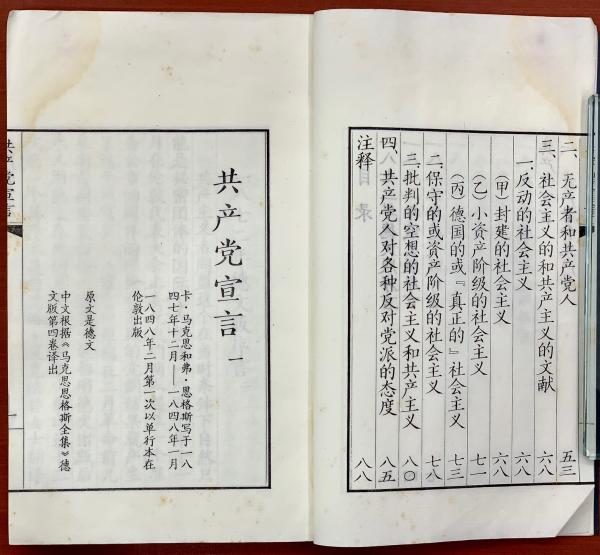 二、无产者和共产党人 五三
三、社会主义的和共产主义的文献 六八
一.反动的社会主义 六八
（甲）封建的社会主义 六八
（乙）小资产阶级的社会主义 七一
（丙）德国的或『真正的』社会主义 七三
二.保守的或资产阶级的社会主义 七八
三.批判的空想的社会主义和共产主义 八〇
四、共产党人对各种反对党派的态度 八五
注释 八八
共产党宣言 一
卡·马克思和弗·恩格斯写于一八
四七年十二月——一八四八年一月
一八四八年二月第一次以单行本在
伦敦出版
原文是德文
中文根据《马克思恩格斯全集》德
文版第四卷译出
共产党宣言
一